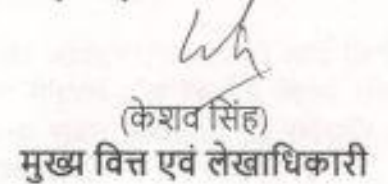 (केशव सिंह)
मुख्य वित्त एवं लेखाधिकारी